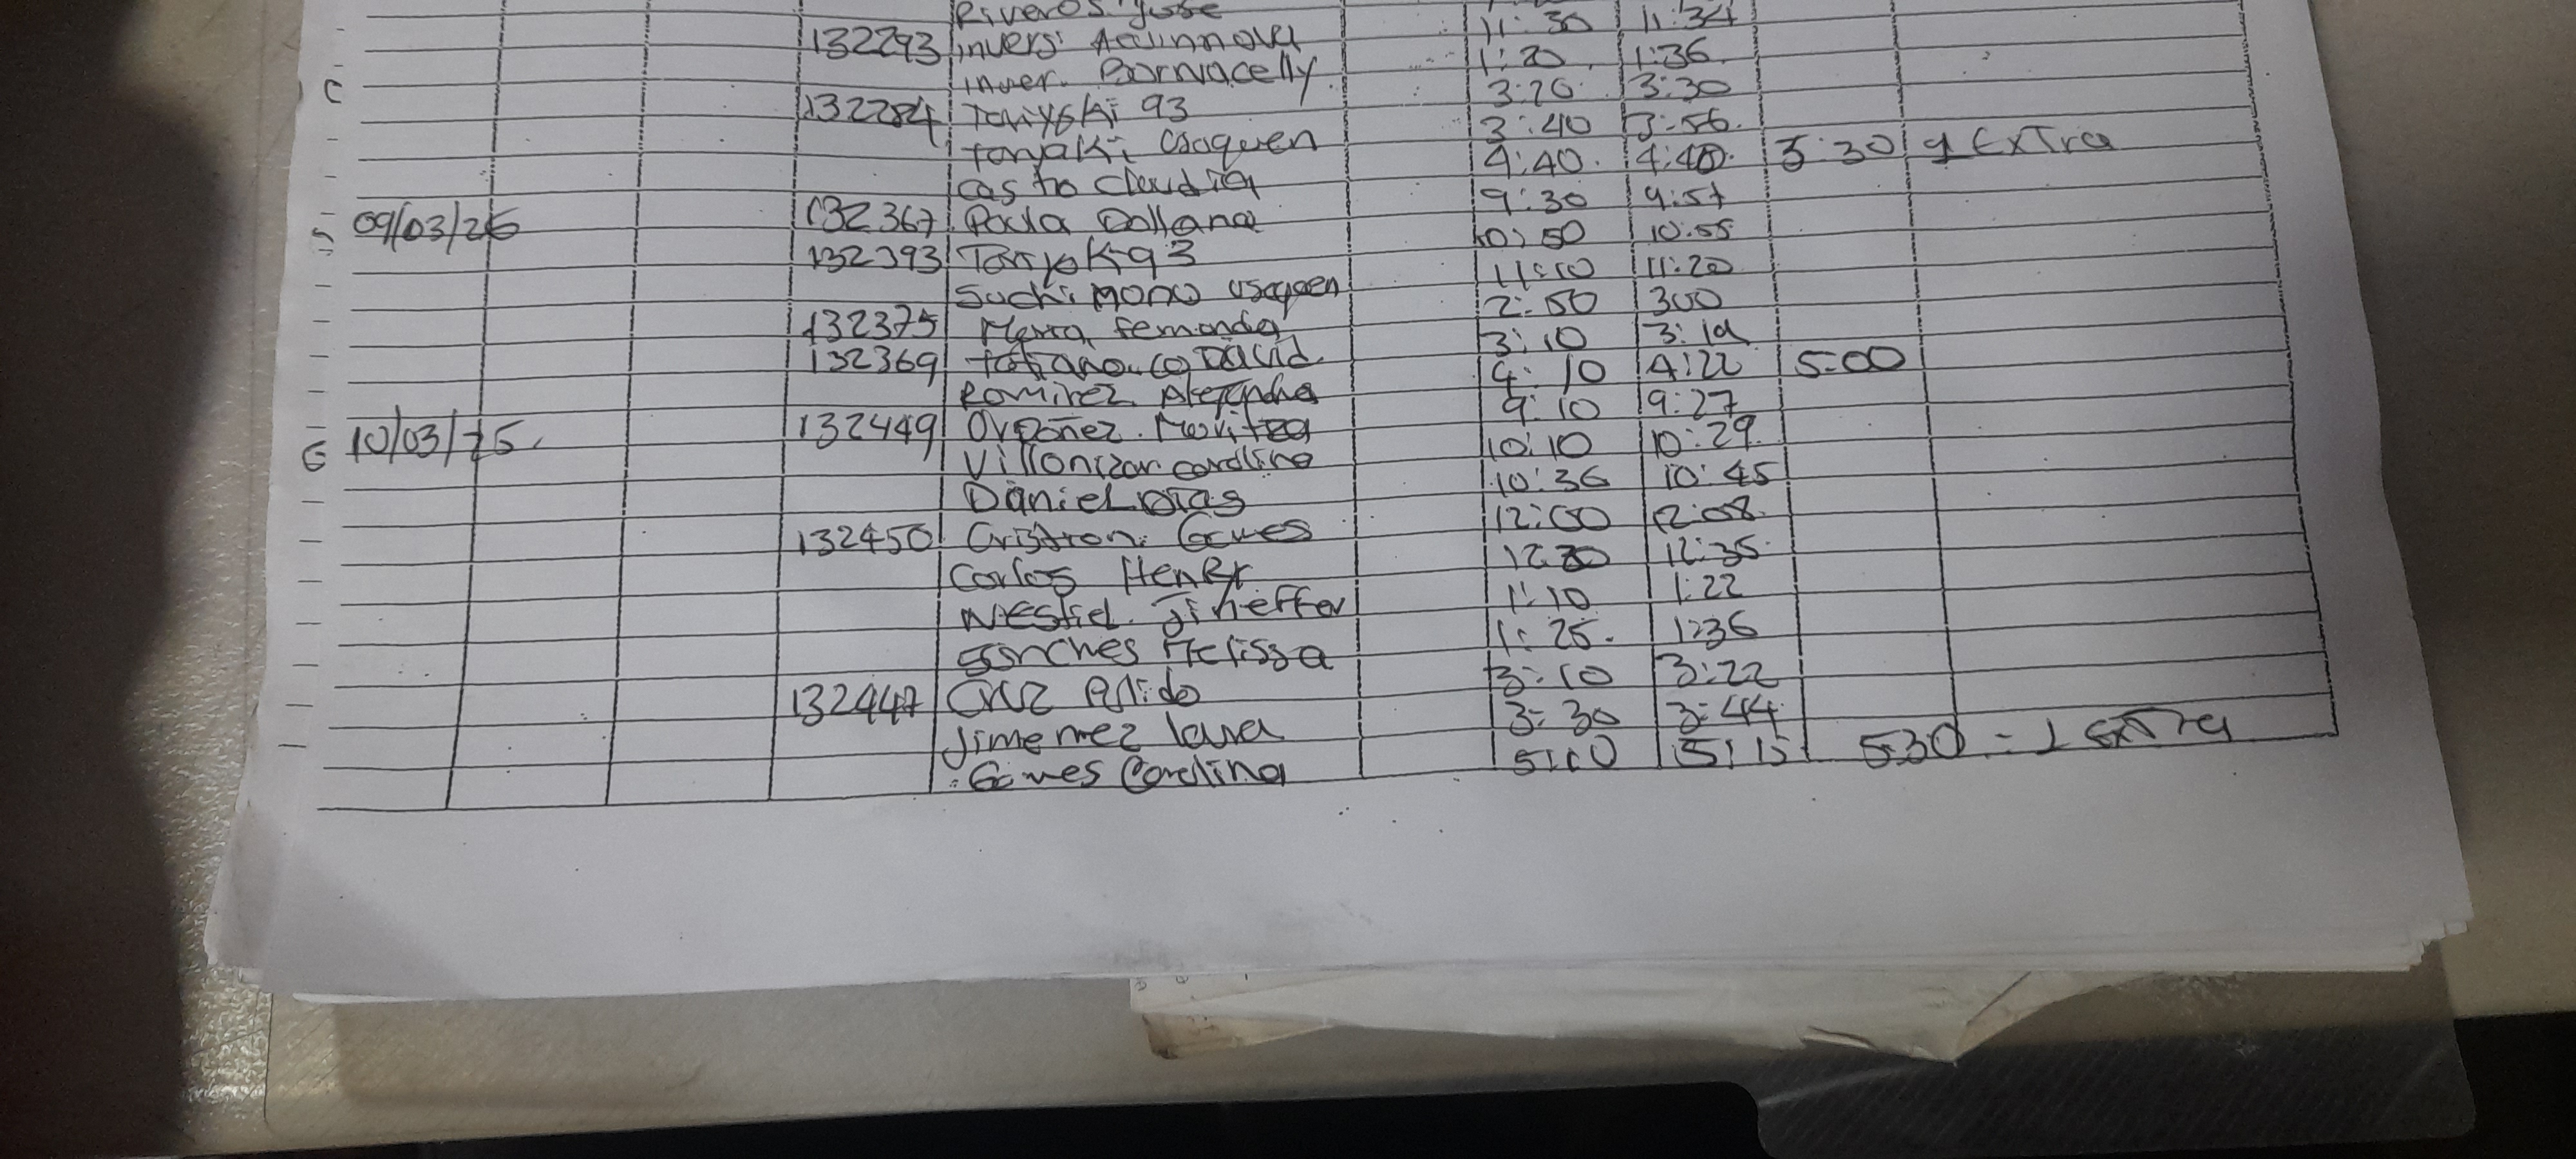 Riveros Jose 11:30 11:34
132293 invers: Acuinnova 1:20 1:36
inver. Bornacelly 3:20 3:30
C 132284 Taiyoki 93 3:40 3:56
tanyaki Usaquen 4:40 4:40 5:30 1 ExTra
castro Claudia 9:30 9:57
09/03/25 132367 Paola 10:50 10:55
132393 11:10 11:20
Suchi momo usaquen 2:50 300
132375 Maria fernanda 3:10 3:19
132369 David 4:10 4:22 5:00
Ramirez. Alejandra 9:10 9:27
6 10/03/25. 132449 Ordoñez. Maritza 10:10 10:29
Villamizar carolina 10:36 10:45
Daniel Dias 12:00 12:08
132450 Cristian. Gomes 12:35
Carlos Henry 1:10 1:22
Jineffer 1:25. 1:36
Sanches Melissa 3:10 3:22
132447 Cruz 3:30 3:44
Jimemez laura 5:10 5:15 530 - 1 exTra
Gomes Carolina